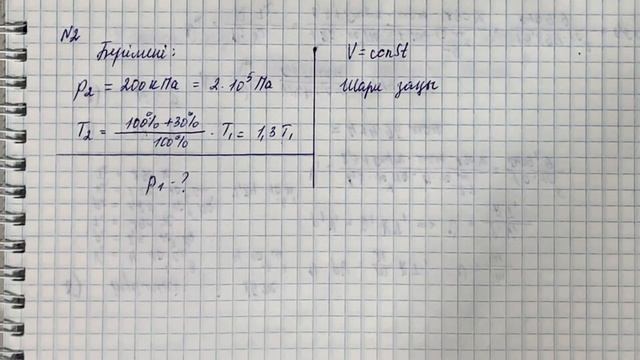 N2
Берілгені:
p₂ = 200кПа = 2·10⁵Па
T₂ = (100% + 30%)/100% · T₁ = 1,3T₁
p₁ - ?
V = const
Шарль заңы